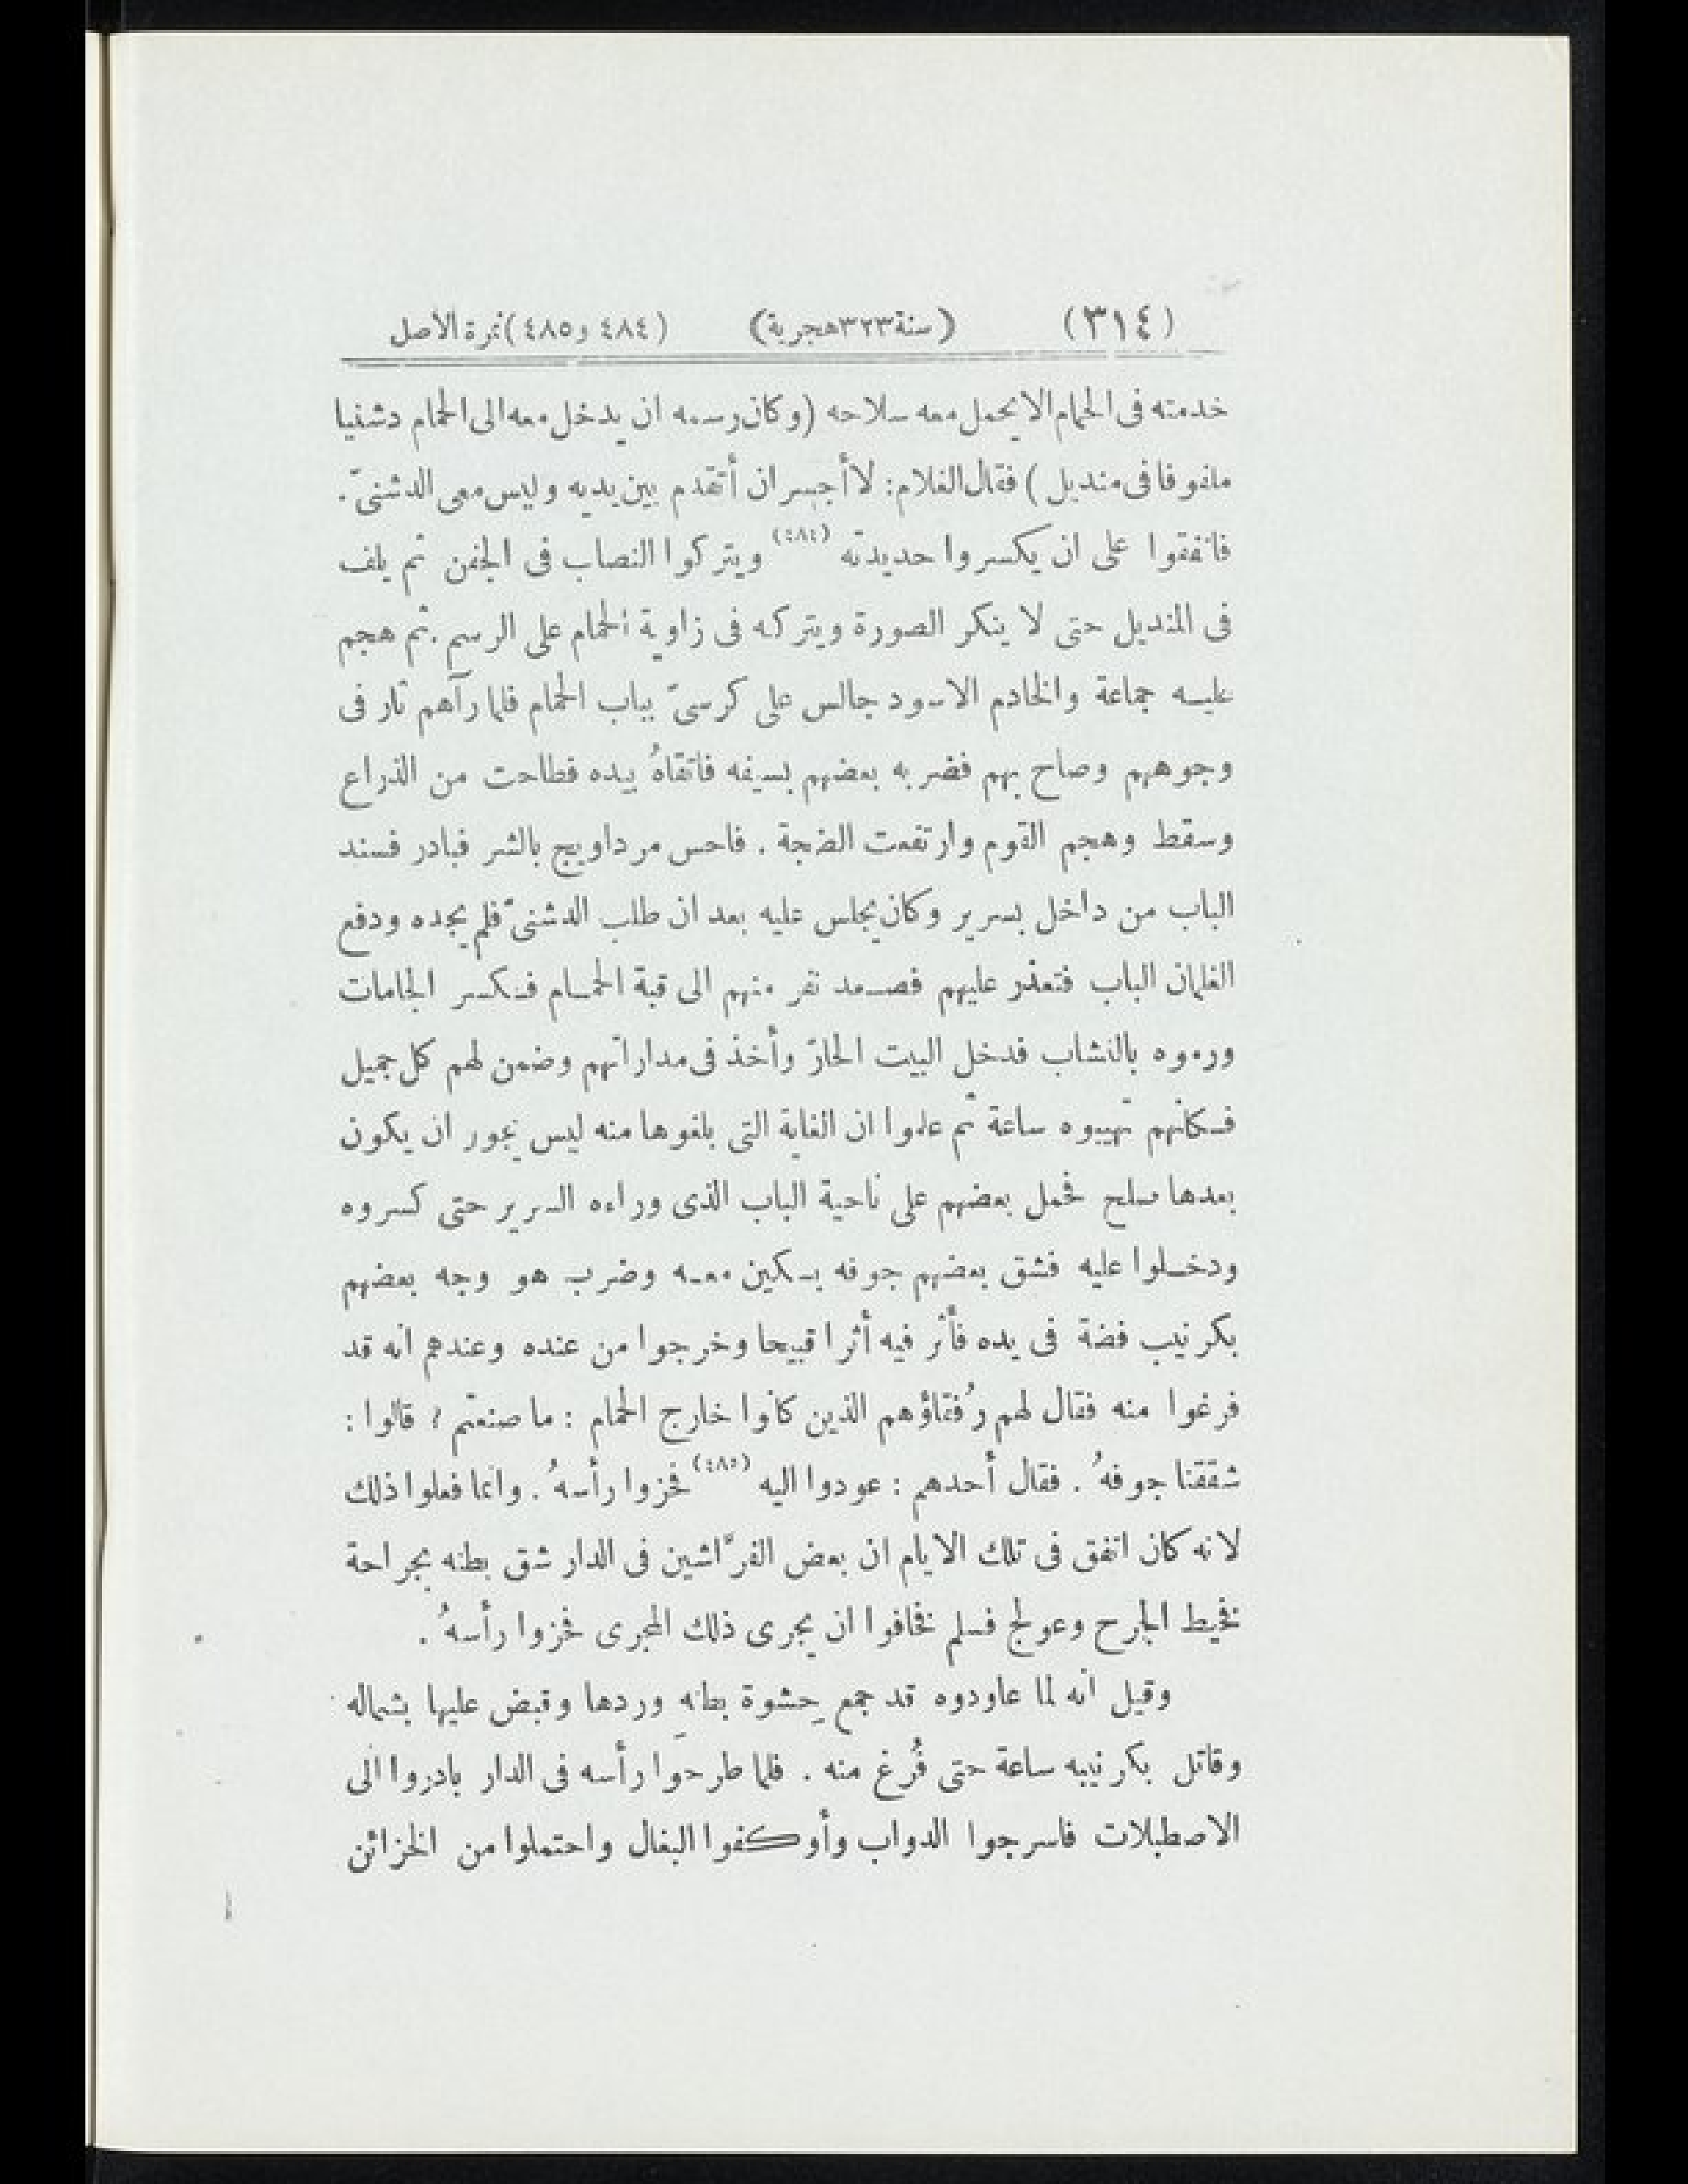 (٣١٤) (سنة ٣٢٣ هجرية) (٤٨٤ و ٤٨٥) نمرة الاصل
خدمته فى الحمام الا يحمل معه سلاحه (وكان رسمه ان يدخل معه الى الحمام دشنيا
ملفوفا فى منديل) فقال الغلام: لا أجسر ان أتقدم بين يديه وليس معى الدشنىّ.
فاتفقوا على ان يكسروا حديدته (٤٨٤) ويتركوا النصاب فى الجفن ثم يلف
فى المنديل حتى لا ينكر الصورة ويتركه فى زاوية الحمام على الرسم. ثم هجم
عليه جماعة والخادم الاسود جالس على كرسىّ بباب الحمام فلما رآهم ثار فى
وجوههم وصاح بهم فضربه بعضهم بسيفه فاتقاهُ بيده فطاحت من الذراع
وسقط وهجم القوم وارتفعت الضجة. فاحس مرداويج بالشر فبادر فسند
الباب من داخل بسرير وكان يجلس عليه بعد ان طلب الدشنىّ فلم يجده ودفع
الغلمان الباب فتعذر عليهم فصعد نفر منهم الى قبة الحمام فكسر الجامات
ورموه بالنشاب فدخل البيت الحارّ وأخذ فى مداراتهم وضمن لهم كل جميل
فكانهم تهيبوه ساعة ثم علموا ان الغاية التى بلغوها منه ليس يجور ان يكون
بعدها صلح فحمل بعضهم على ناحية الباب الذى وراءه السرير حتى كسروه
ودخلوا عليه فشق بعضهم جوفه بسكين معه وضرب هو وجه بعضهم
بكرنيب فضة فى يده فأثر فيه أثرا قبيحا وخرجوا من عنده وعندهم انه قد
فرغوا منه فقال لهم رُفقاؤهم الذين كانوا خارج الحمام : ما صنعتم ؟ قالوا :
شققنا جوفهُ. فقال أحدهم : عودوا اليه (٤٨٥) فحزوا رأسهُ. وانما فعلوا ذلك
لانه كان اتفق فى تلك الايام ان بعض الفرّاشين فى الدار شق بطنه بجراحة
فخيط الجرح وعولج فسلم فخافوا ان يجرى ذلك المجرى فحزوا رأسهُ.
وقيل انه لما عاودوه قد جمع حِشوة بطنهِ وردها وقبض عليها بشماله
وقاتل بكرنيبه ساعة حتى فُرغ منه. فلما طرحوا رأسه فى الدار بادروا الى
الاصطبلات فاسرجوا الدواب وأوكفوا البغال واحتملوا من الخزائن